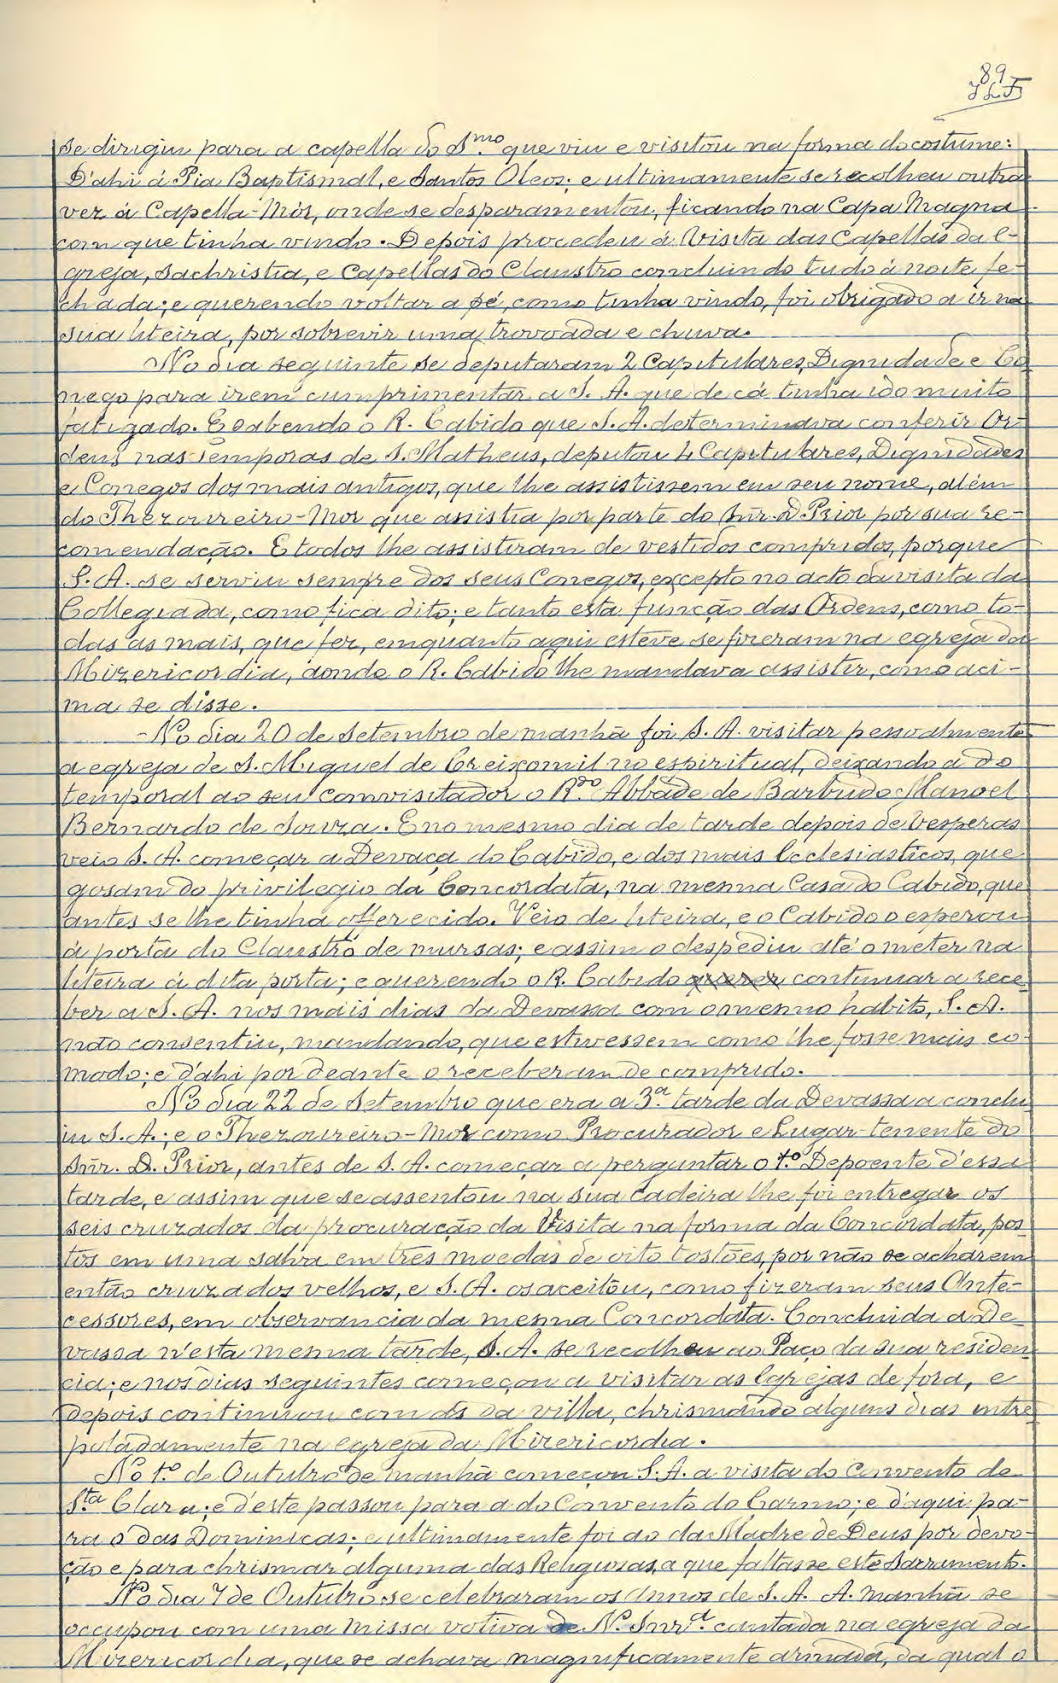 89
se dirigiu para a capella do S.mo que viu e visitou na forma do costume:
D'ahi á Pia Baptismal, e Santos Oleos; e ultimamente se recolheu outra
vez á Capella-Mór, onde se desparamentou, ficando na Capa Magna
com que tinha vindo. Depois procedeu á Visita das Capellas da E-
greja, Sachristia, e Capellas do Claustro concluindo tudo á noite fe-
chada; e querendo voltar a pé, como tinha vindo, foi obrigado a ir na
sua liteira, por sobrevir uma trovoada e chuva.
No dia seguinte se deputaram 2 Capitulares, Dignidade e Co-
nego para irem cumprimentar a S. A. que de cá tinha ido muito
fatigado. E sabendo o R. Cabido que S. A. determinava conferir Or-
dens nas Temporas de S. Matheus, deputou 4 Capitulares, Dignidades
e Conegos dos mais antigos, que lhe assistissem em seu nome, além
do Thezoureiro-Mor que assistia por parte do Snr. D. Prior por sua re-
comendação. E todos lhe assistiram de vestidos compridos, porque
S. A. se serviu sempre dos seus Conegos, excepto no acto da visita da
Collegiada, como fica dito; e tanto esta funcção das Ordens, como to-
das as mais, que fez, emquanto aqui esteve se fizeram na egreja da
Mizericordia, aonde o R. Cabido lhe mandava assistir, como aci-
ma se disse.
-No dia 20 de Setembro de manhã foi S. A. visitar pessoalmente
a egreja de S. Miguel de Creixomil no espiritual, deixando a do
temporal ao seu comvisitador o R.do Abbade de Barbudo Manoel
Bernardo de Souza. E no mesmo dia de tarde depois de Vesperas
veio S. A. começar a Devaça do Cabido, e dos mais Ecclesiasticos, que
gosam do privilegio da Concordata, na mesma Casa do Cabido, que
antes se lhe tinha offerecido. Veio de liteira, e o Cabido o esperou
á porta do Claustro de mursas; e assim o despediu até o meter na
liteira á dita porta; e querendo o R. Cabido querer continuar a rece-
ber a S. A. nos mais dias da Devassa com o mesmo habito, S. A.
não consentiu, mandando, que estivessem como lhe fosse mais co-
modo; e d'ahi por deante o receberam de comprido.
No dia 22 de Setembro que era a 3.a tarde da Devassa a conclu-
iu S. A.; e o Thezoureiro-Mor como Procurador e Lugar-tenente do
Snr. D. Prior, antes de S. A. começar a perguntar o 1.o Depoente d'essa
tarde, e assim que se assentou na sua cadeira lhe foi entregar os
seis cruzados da procuração da Visita na forma da Concordata, pos-
tos em uma salva em tres moedas de oito tostões, por não se acharem
então cruzados velhos, e S. A. os aceitou, como fizeram seus Ante-
cessores, em observancia da mesma Concordata. Concluida a De-
vassa n'esta mesma tarde, S. A. se recolheu ao Paço da sua residen-
cia; e nos dias seguintes começou a visitar as Egrejas de fora, e
depois continuou com as da villa, chrismando alguns dias intre-
poladamente na egreja da Mizericordia.
No 1.o de Outubro de manhã começou S. A. a visita do Convento de
S.ta Clara; e d'este passou para a do Convento do Carmo; e d'aqui pa-
ra o das Dominicas; e ultimamente foi ao da Madre de Deus por devo-
ção e para chrismar alguma das Religiosas, a que faltasse este Sacramento.
No dia 7 de Outubro se celebraram os Annos de S. A. A manhã se
occupou com uma missa votiva de N. Snr.a cantada na egreja da
Mizericordia, que se achava magnificamente armada, da qual o